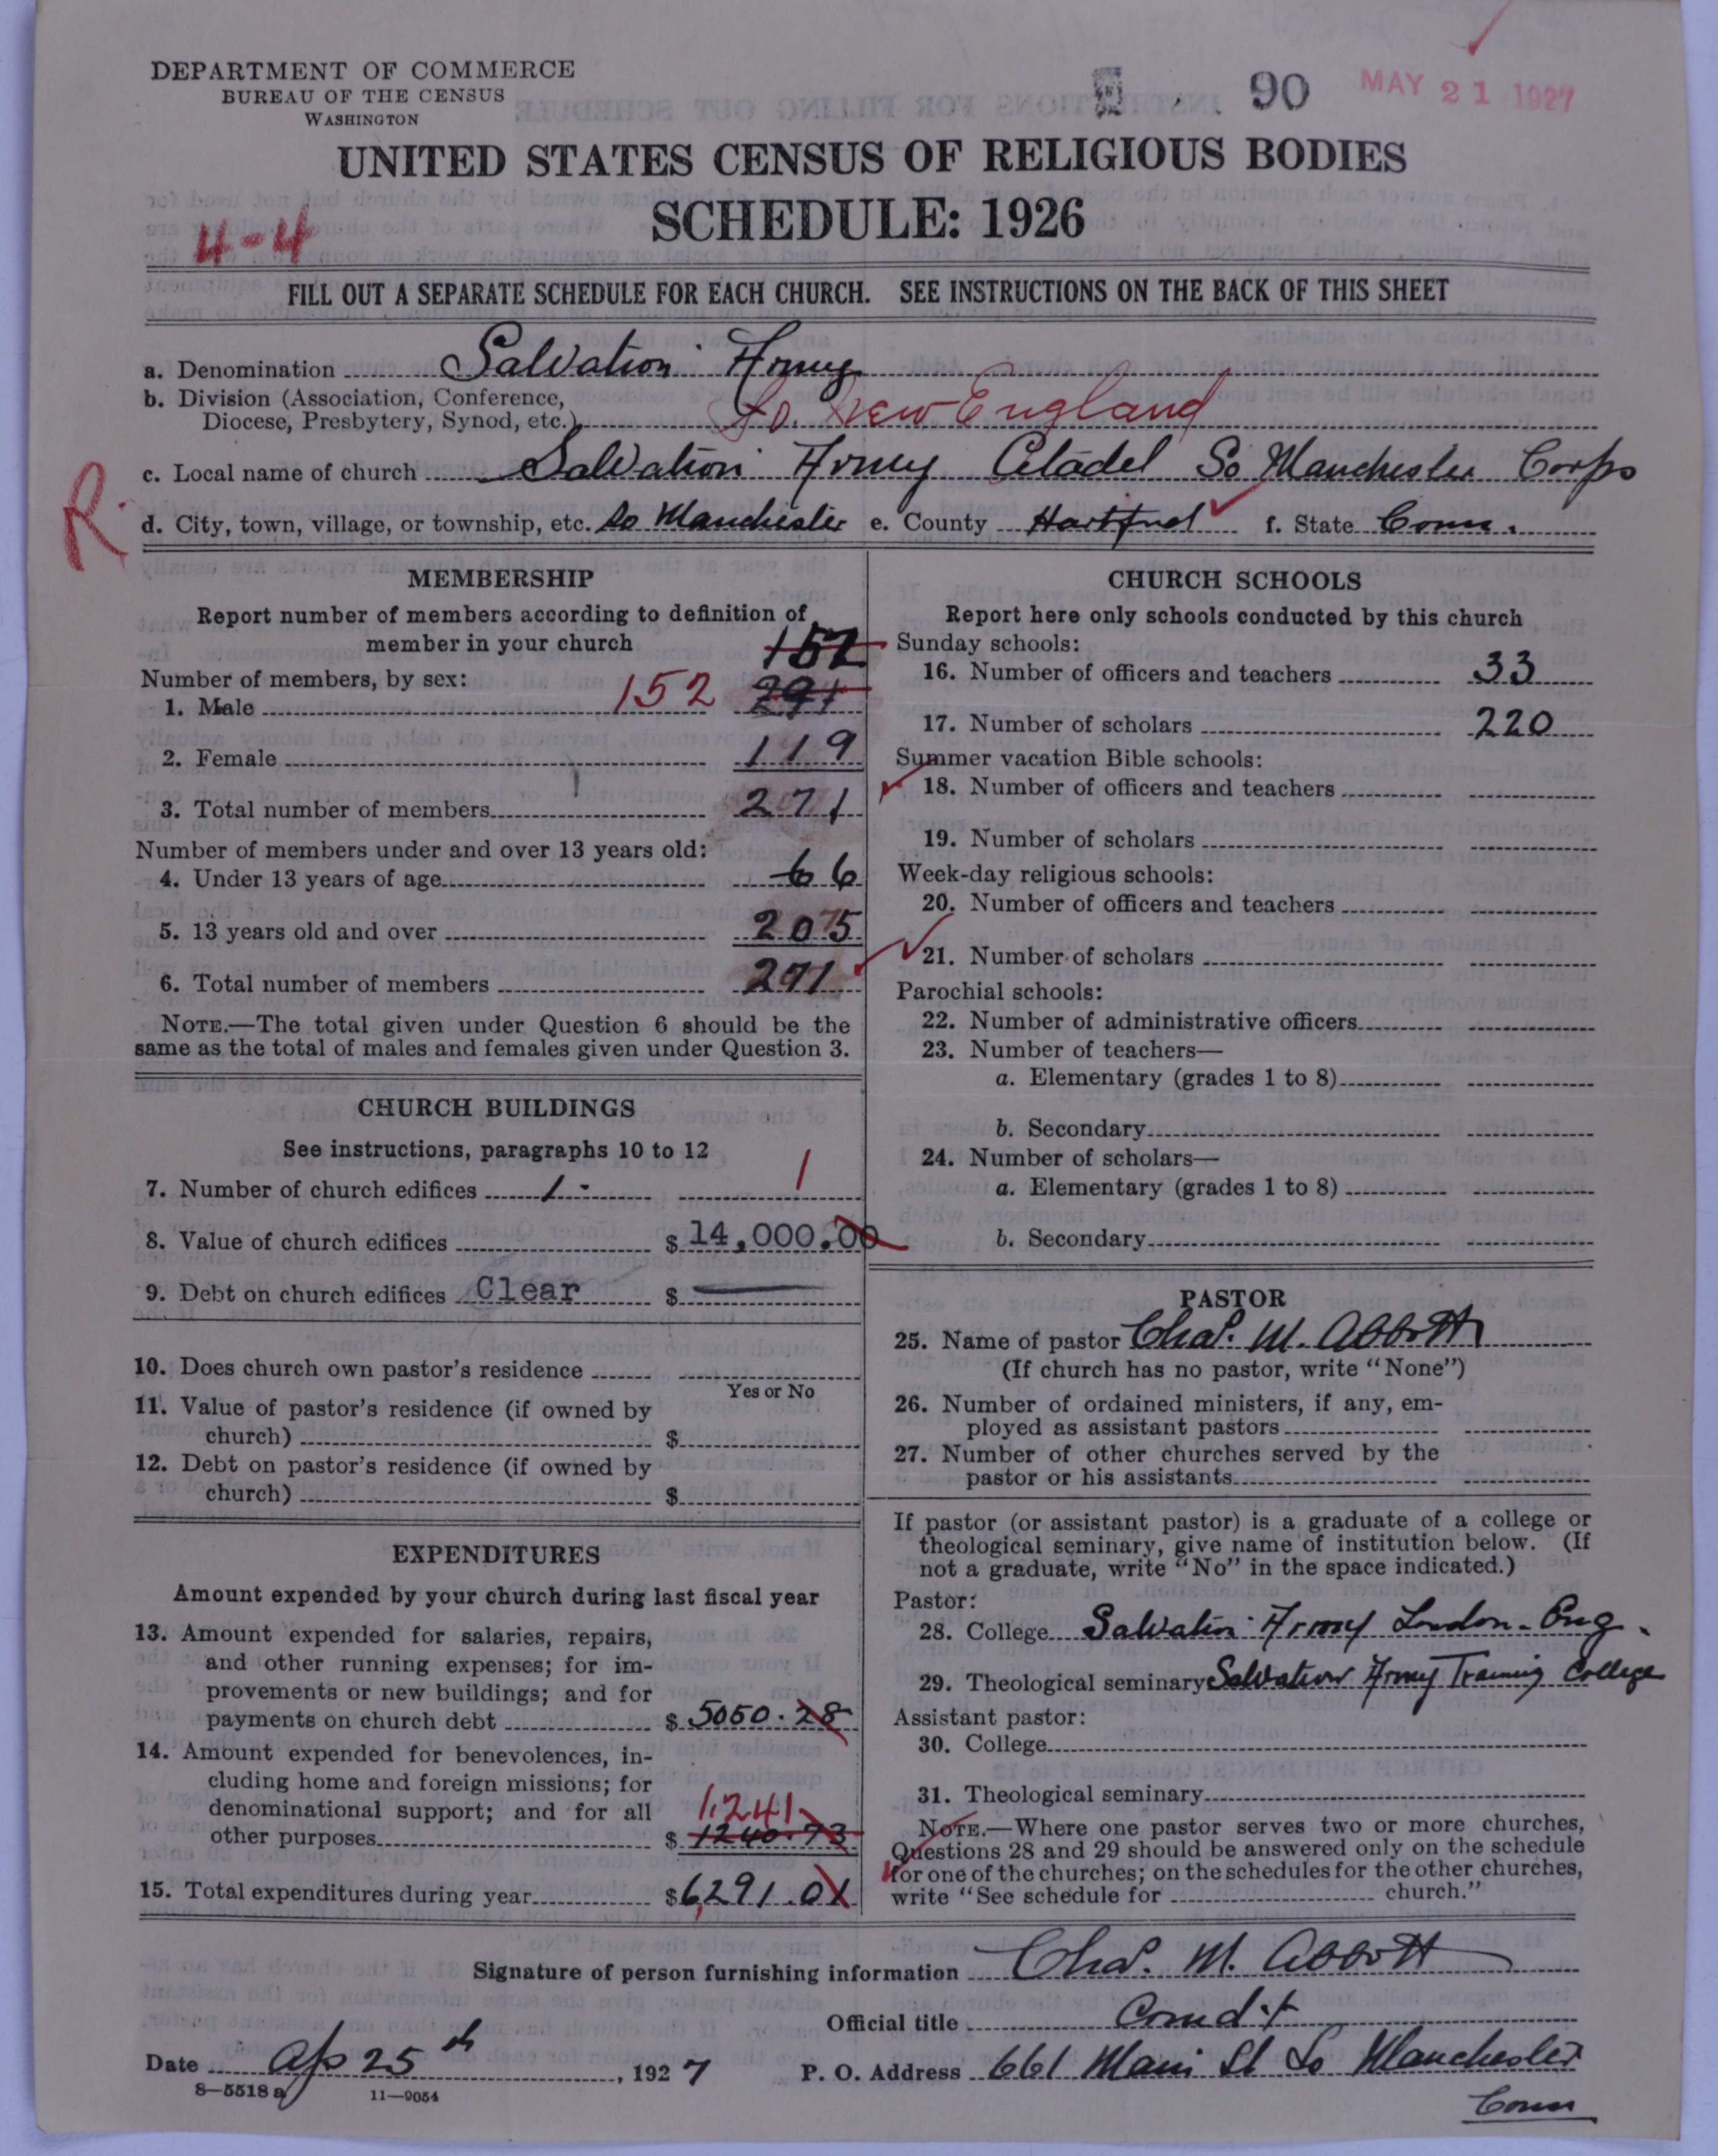 DEPARTMENT OF COMMERCE
BUREAU OF THE CENSUS
WASHINGTON
90
MAY 21 1927
UNITED STATES CENSUS OF RELIGIOUS BODIES
SCHEDULE: 1926
4-4
FILL OUT A SEPARATE SCHEDULE FOR EACH CHURCH. SEE INSTRUCTIONS ON THE BACK OF THIS SHEET
a. Denomination Salvation Army
b. Division (Association, Conference,
Diocese, Presbytery, Synod, etc.) So. New England
c. Local name of church Salvation Army Citadel So Manchester Corps
R.
d. City, town, village, or township, etc. So Manchester e. County Hartford f. State Conn.
MEMBERSHIP
Report number of members according to definition of
member in your church
152
Number of members, by sex:
1. Male 152 271
2. Female 119
3. Total number of members 271
Number of members under and over 13 years old:
4. Under 13 years of age 66
5. 13 years old and over 205
6. Total number of members 271
NOTE.—The total given under Question 6 should be the
same as the total of males and females given under Question 3.
CHURCH BUILDINGS
See instructions, paragraphs 10 to 12
7. Number of church edifices 1- 1
8. Value of church edifices $ 14,000.00
9. Debt on church edifices Clear $ —
10. Does church own pastor's residence
Yes or No
11. Value of pastor's residence (if owned by
church) $
12. Debt on pastor's residence (if owned by
church) $
EXPENDITURES
Amount expended by your church during last fiscal year
13. Amount expended for salaries, repairs,
and other running expenses; for im-
provements or new buildings; and for
payments on church debt $ 5050.28
14. Amount expended for benevolences, in-
cluding home and foreign missions; for
denominational support; and for all 1,241
other purposes $ 1240.73
15. Total expenditures during year $ 6,291.01
CHURCH SCHOOLS
Report here only schools conducted by this church
Sunday schools:
16. Number of officers and teachers 33
17. Number of scholars 220
Summer vacation Bible schools:
18. Number of officers and teachers
19. Number of scholars
Week-day religious schools:
20. Number of officers and teachers
21. Number of scholars
Parochial schools:
22. Number of administrative officers
23. Number of teachers—
a. Elementary (grades 1 to 8)
b. Secondary
24. Number of scholars—
a. Elementary (grades 1 to 8)
b. Secondary
PASTOR
25. Name of pastor Chas. M. Abbott
(If church has no pastor, write "None")
26. Number of ordained ministers, if any, em-
ployed as assistant pastors
27. Number of other churches served by the
pastor or his assistants
If pastor (or assistant pastor) is a graduate of a college or
theological seminary, give name of institution below. (If
not a graduate, write "No" in the space indicated.)
Pastor:
28. College Salvation Army London - Eng.
29. Theological seminary Salvation Army Training College
Assistant pastor:
30. College
31. Theological seminary
NOTE.—Where one pastor serves two or more churches,
Questions 28 and 29 should be answered only on the schedule
for one of the churches; on the schedules for the other churches,
write "See schedule for church."
Signature of person furnishing information Chas. M. Abbott
Official title Comdt
Date Ap 25th, 1927 P. O. Address 661 Main St So Manchester
Conn
8—5518 a 11—9054